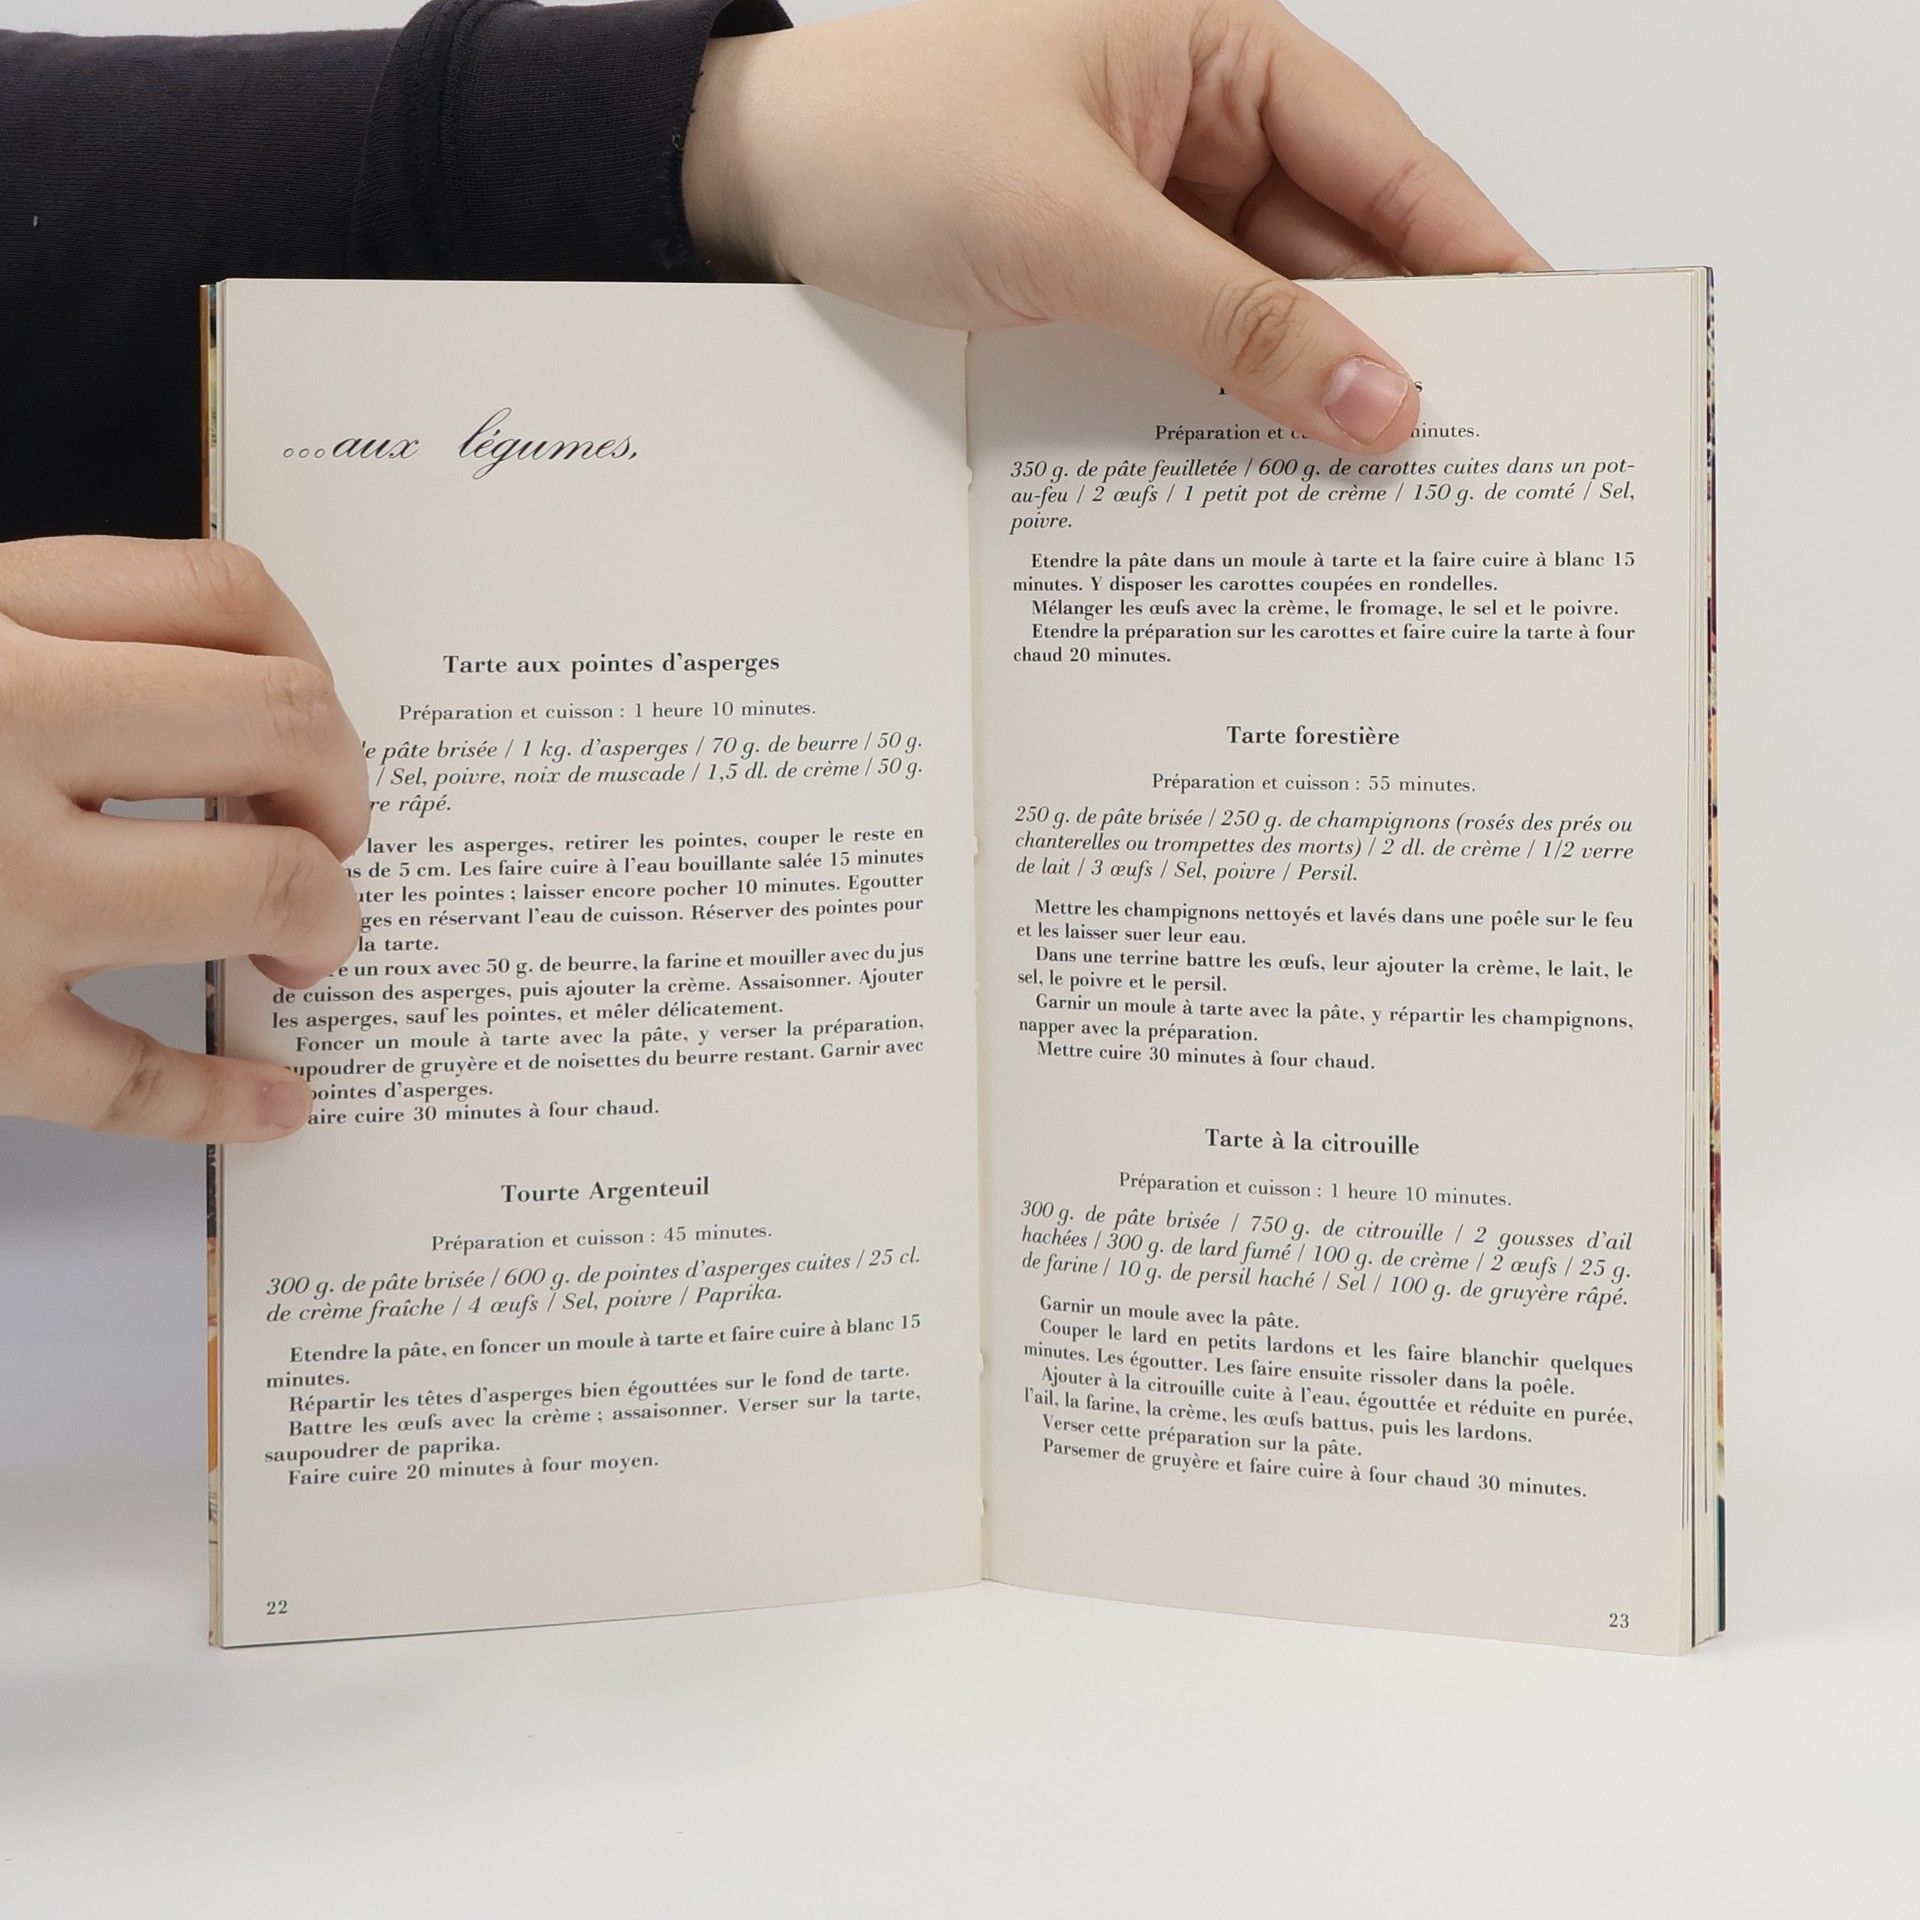 ...aux légumes,
Tarte aux pointes d'asperges
Préparation et cuisson : 1 heure 10 minutes.
pâte brisée / 1 kg. d'asperges / 70 g. de beurre / 50 g.
/ Sel, poivre, noix de muscade / 1,5 dl. de crème / 50 g.
râpé.
laver les asperges, retirer les pointes, couper le reste en
de 5 cm. Les faire cuire à l'eau bouillante salée 15 minutes
les pointes ; laisser encore pocher 10 minutes. Egoutter
en réservant l'eau de cuisson. Réserver des pointes pour
la tarte.
un roux avec 50 g. de beurre, la farine et mouiller avec du jus
de cuisson des asperges, puis ajouter la crème. Assaisonner. Ajouter
les asperges, sauf les pointes, et mêler délicatement.
Foncer un moule à tarte avec la pâte, y verser la préparation,
saupoudrer de gruyère et de noisettes du beurre restant. Garnir avec
pointes d'asperges.
Faire cuire 30 minutes à four chaud.
Tourte Argenteuil
Préparation et cuisson : 45 minutes.
300 g. de pâte brisée / 600 g. de pointes d'asperges cuites / 25 cl.
de crème fraîche / 4 œufs / Sel, poivre / Paprika.
Etendre la pâte, en foncer un moule à tarte et faire cuire à blanc 15
minutes.
Répartir les têtes d'asperges bien égouttées sur le fond de tarte.
Battre les œufs avec la crème ; assaisonner. Verser sur la tarte,
saupoudrer de paprika.
Faire cuire 20 minutes à four moyen.
22
Préparation et minutes.
350 g. de pâte feuilletée / 600 g. de carottes cuites dans un pot-
au-feu / 2 œufs / 1 petit pot de crème / 150 g. de comté / Sel,
poivre.
Etendre la pâte dans un moule à tarte et la faire cuire à blanc 15
minutes. Y disposer les carottes coupées en rondelles.
Mélanger les œufs avec la crème, le fromage, le sel et le poivre.
Etendre la préparation sur les carottes et faire cuire la tarte à four
chaud 20 minutes.
Tarte forestière
Préparation et cuisson : 55 minutes.
250 g. de pâte brisée / 250 g. de champignons (rosés des prés ou
chanterelles ou trompettes des morts) / 2 dl. de crème / 1/2 verre
de lait / 3 œufs / Sel, poivre / Persil.
Mettre les champignons nettoyés et lavés dans une poêle sur le feu
et les laisser suer leur eau.
Dans une terrine battre les œufs, leur ajouter la crème, le lait, le
sel, le poivre et le persil.
Garnir un moule à tarte avec la pâte, y répartir les champignons,
napper avec la préparation.
Mettre cuire 30 minutes à four chaud.
Tarte à la citrouille
Préparation et cuisson : 1 heure 10 minutes.
300 g. de pâte brisée / 750 g. de citrouille / 2 gousses d'ail
hachées / 300 g. de lard fumé / 100 g. de crème / 2 œufs / 25 g.
de farine / 10 g. de persil haché / Sel / 100 g. de gruyère râpé.
Garnir un moule avec la pâte.
Couper le lard en petits lardons et les faire blanchir quelques
minutes. Les égoutter. Les faire ensuite rissoler dans la poêle.
Ajouter à la citrouille cuite à l'eau, égouttée et réduite en purée,
l'ail, la farine, la crème, les œufs battus, puis les lardons.
Verser cette préparation sur la pâte.
Parsemer de gruyère et faire cuire à four chaud 30 minutes.
23